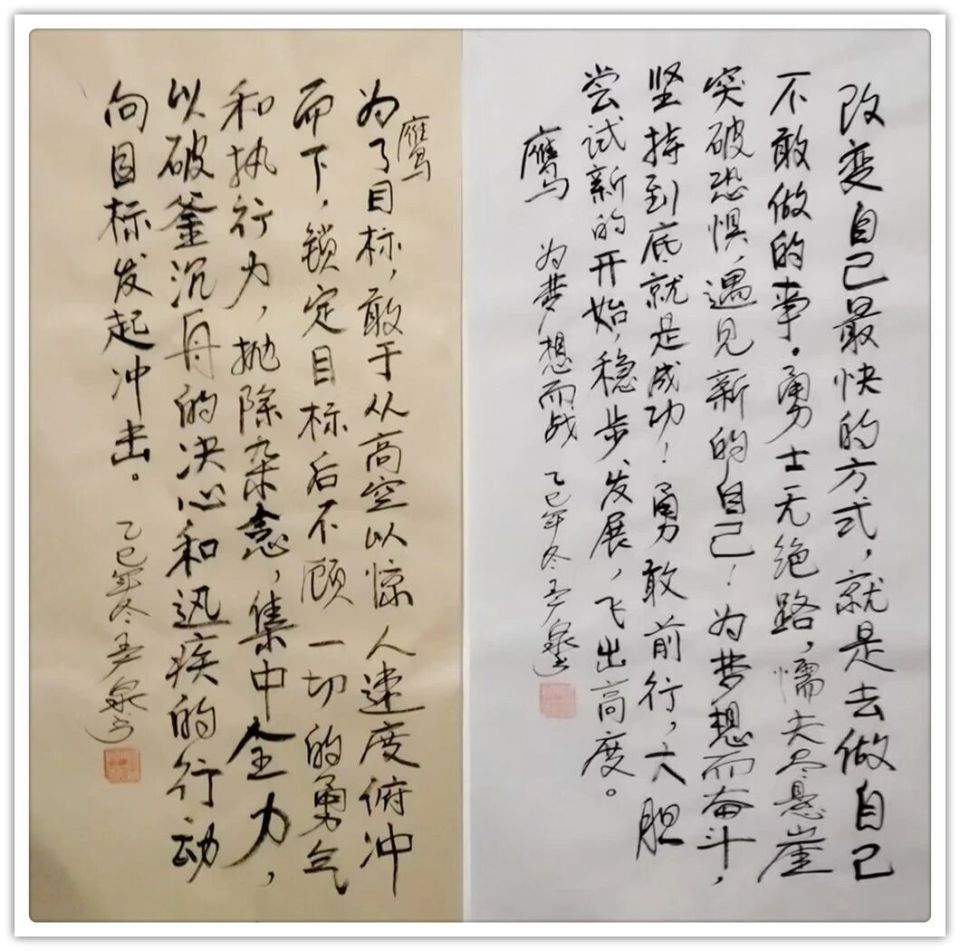 改变自己最快的方式，就是去做自己
不敢做的事。勇士无绝路，懦夫尽悬崖
突破恐惧，遇见新的自己！为梦想而奋斗，
坚持到底就是成功！勇敢前行，大胆
尝试新的开始，稳步发展，飞出高度。
鹰 为梦想而战 乙巳年冬
鹰
为了目标，敢于从高空以惊人速度俯冲
而下，锁定目标后不顾一切的勇气
和执行力，抛除杂念，集中全力，
以破釜沉舟的决心和迅疾的行动
向目标发起冲击。 乙巳年冬